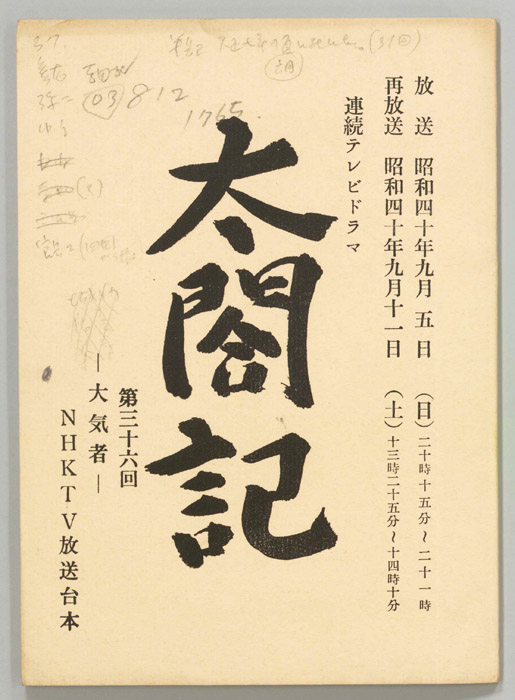 放送　昭和四十年九月　五　日　（日）二十時十五分～二十一時
再放送　昭和四十年九月十一日　（土）十三時二十五分～十四時十分
連続テレビドラマ
太閤記
第三十六回
―大気者―
NHKTV放送台本
(03) 812
1765.
(31回)